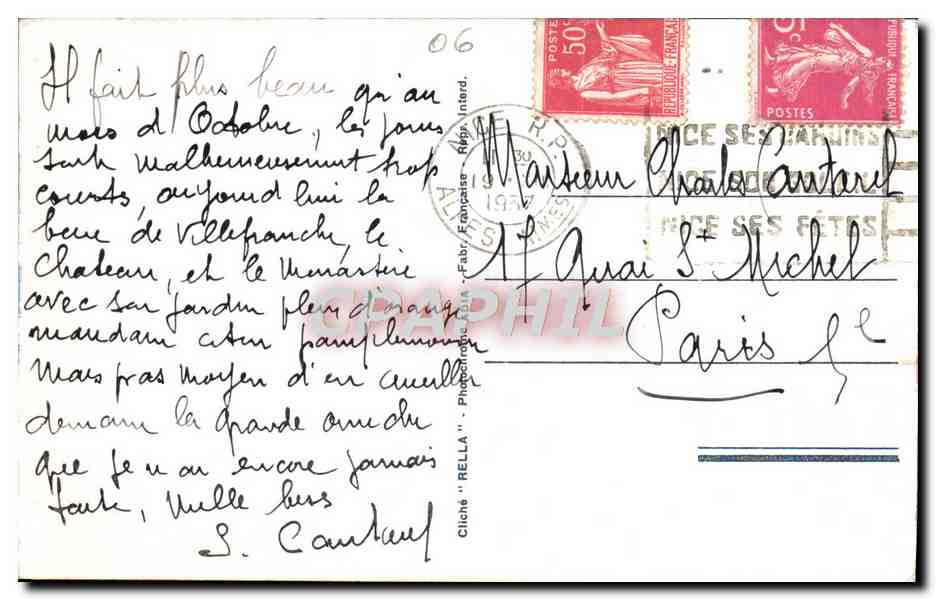 06
Il fait plus beau qu'au
mois d'Octobre, les jours
sont malheureusement trop
courts, aujourd'hui la
baie de Villefranche, le
Chateau, et le Monastère
avec son jardin plein d'orange
mandarin citron pamplemousse
mais pas moyen d'en cueillir
demain la grande corniche
que je n'ai encore jamais
faite, mille bises
S. Cantarel
Cliché "RELLA" - Photochromie ADIA - Fabr. Française - Repr. Interd.
POSTES
50c
REPUBLIQUE FRANÇAISE
POSTES
NICE R.P.
1937
ALPES MMES
NICE SES JARDINS
NICE
NICE SES FÊTES
Monsieur Charles Cantarel
17 Quai St Michel
Paris 5e
CPAPHIL